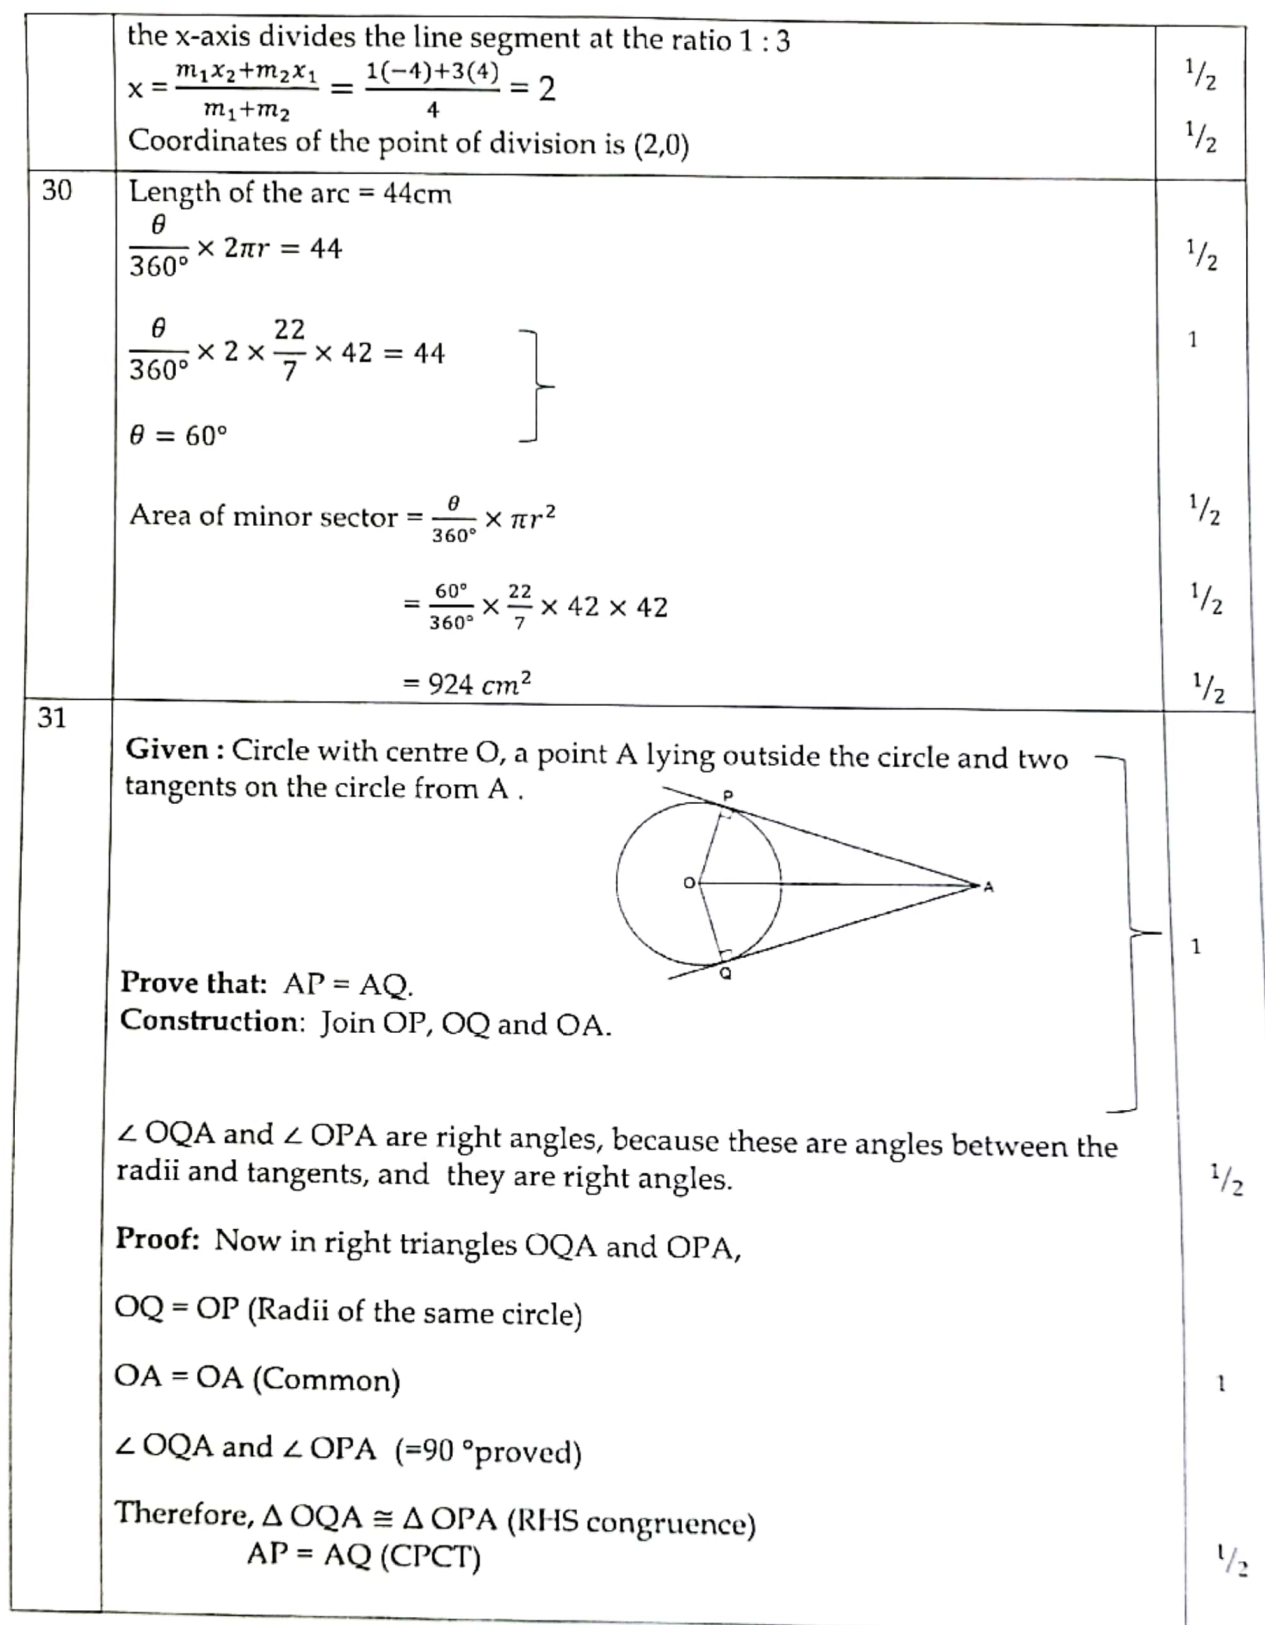 the x-axis divides the line segment at the ratio 1 : 3
x = m₁x₂+m₂x₁ / m₁+m₂ = 1(−4)+3(4) / 4 = 2
1/2
Coordinates of the point of division is (2,0)
1/2
30
Length of the arc = 44cm
θ/360° × 2πr = 44
1/2
θ/360° × 2 × 22/7 × 42 = 44
1
θ = 60°
Area of minor sector = θ/360° × πr²
1/2
= 60°/360° × 22/7 × 42 × 42
1/2
= 924 cm²
1/2
31
Given : Circle with centre O, a point A lying outside the circle and two
tangents on the circle from A .
P
O
A
Q
1
Prove that: AP = AQ.
Construction: Join OP, OQ and OA.
∠ OQA and ∠ OPA are right angles, because these are angles between the
radii and tangents, and they are right angles.
1/2
Proof: Now in right triangles OQA and OPA,
OQ = OP (Radii of the same circle)
OA = OA (Common)
1
∠ OQA and ∠ OPA (=90 °proved)
Therefore, Δ OQA ≅ Δ OPA (RHS congruence)
AP = AQ (CPCT)
1/2